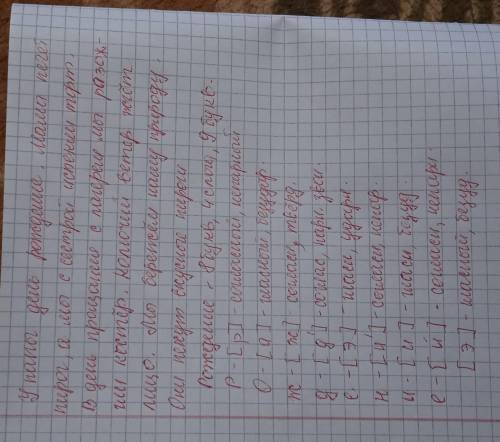 У папы день рождения. Мама печёт
пироги, а мы с сестрой испечем торт.
В день прощания с лагерем мы разож-
гли костёр. Колючий ветер жжёт
лицо. Мы бережем нашу природу.
Они пекут вкусные пироги
Рождение - 8 букв, 4 слога, 9 букв.
Р - [р] - согласный, непарный
О - [а] - гласный безудар.
ж - [ж] соглас, тверд.
д - [д'] - соглас, парн. звон.
е - [э] - гласн, ударн.
н - [н'] - согласн, непар.
и - [и] - гласн, безуд.
е - [й] - согласн, непарн.
[э] - гласный, безуд.